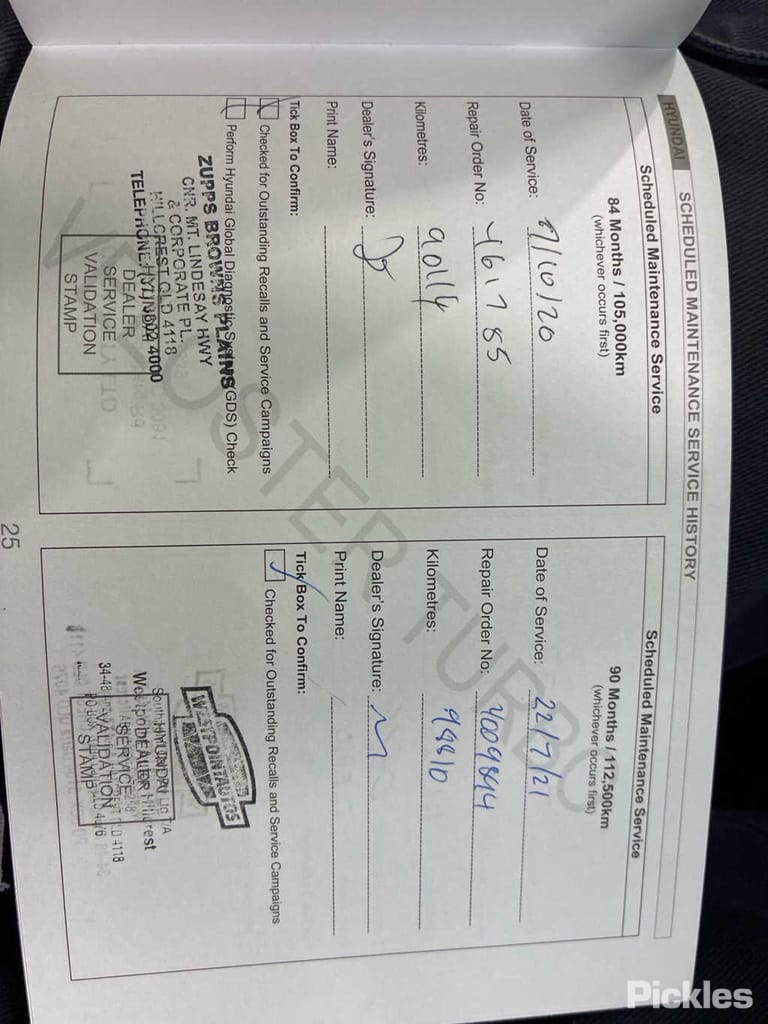 HYUNDAI SCHEDULED MAINTENANCE SERVICE HISTORY
Scheduled Maintenance Service
84 Months / 105,000km
(whichever occurs first)
Date of Service: 7/10/20
Repair Order No: 461785
Kilometres: 90114
Dealer's Signature:
Print Name:
Tick Box To Confirm:
Checked for Outstanding Recalls and Service Campaigns
Perform Hyundai Global Diagnostic System (GDS) Check
ZUPPS BROWNS PLAINS
CNR. MT. LINDESAY HWY
& CORPORATE PL.
HILLCREST QLD 4118
TELEPHONE:
4000
HYUNDAI
DEALER
SERVICE
VALIDATION
STAMP
Scheduled Maintenance Service
90 Months / 112,500km
(whichever occurs first)
Date of Service: 22/7/21
Repair Order No:
Kilometres:
Dealer's Signature:
Print Name:
Tick Box To Confirm:
Checked for Outstanding Recalls and Service Campaigns
WESTPOINT AUTOS
HYUNDAI
DEALER
SERVICE
VALIDATION
STAMP
34-48
4118
VELOSTER TURBO
25
Pickles